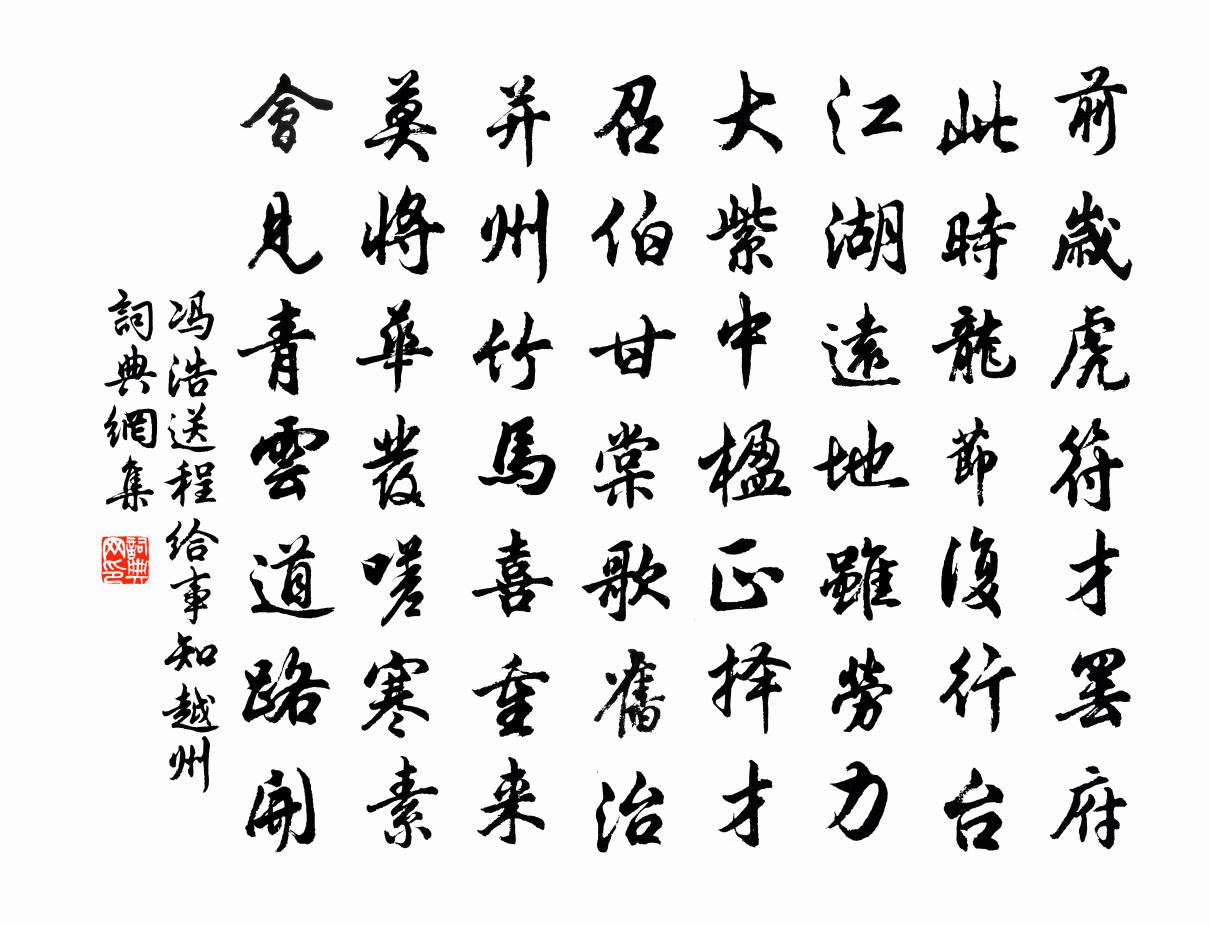 前歲虎符才罷府
此時龍節復行台
江湖遠地雖勞力
大紫中楹正择才
召伯甘棠歌舊治
并州竹馬喜重来
莫將華發嗟寒素
會見青雲道路開
冯浩送程给事知越州
詞典網集
詞典网印